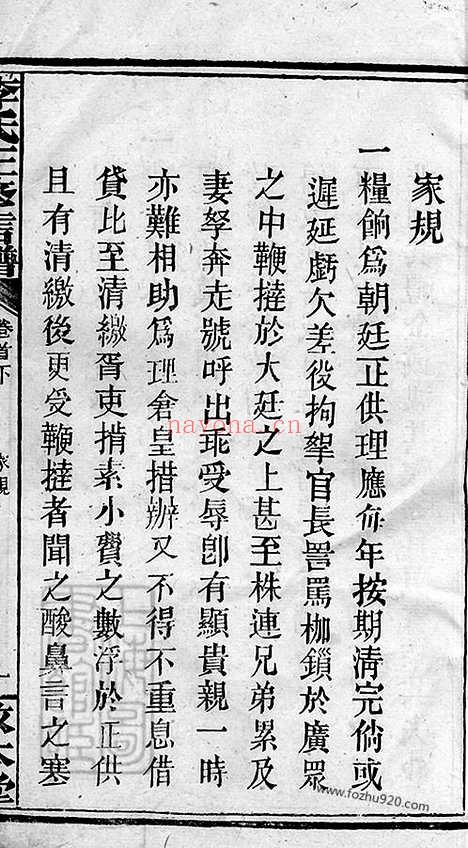 家規
一糧餉爲朝廷正供理應每年按期清完倘或
遲延虧欠差役拘拏官長詈罵枷鎖於廣眾
之中鞭撻於大廷之上甚至株連兄弟累及
妻孥奔走號呼出乖受辱卽有顯貴親一時
亦難相助爲理倉皇措辦又不得不重息借
貸比至清繳胥吏揹素小費之數浮於正供
且有清繳後更受鞭撻者聞之酸鼻言之寒
李氏三修宗譜
卷首下
家規
一
敦本堂
nayona.cn
www.fozhu920.com